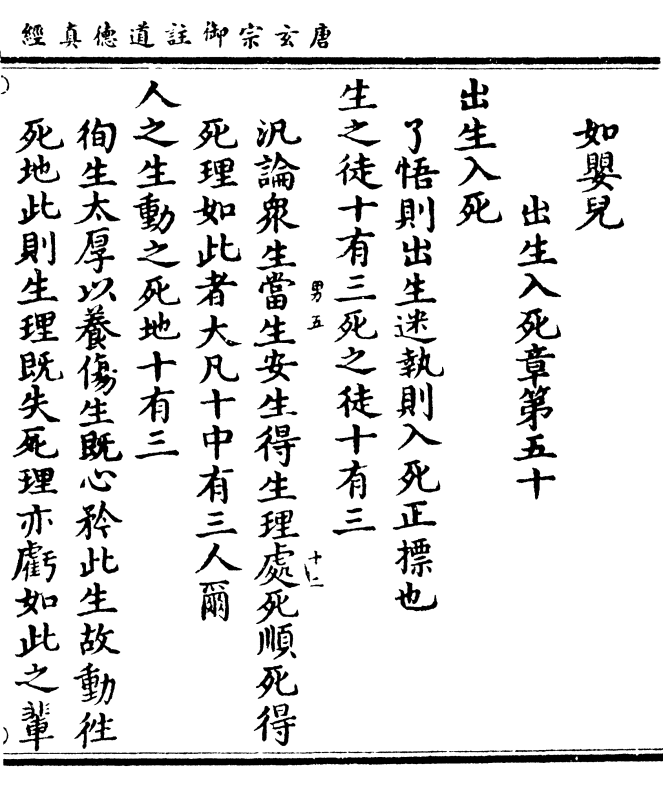 唐玄宗御註道德真經
如嬰兒
出生入死章第五十
出生入死
了悟則出生迷執則入死正標也
生之徒十有三死之徒十有三
男五
十二
汎論衆生當生安生得生理處死順死得
死理如此者大凡十中有三人爾
人之生動之死地十有三
徇生太厚以養傷生既心矜此生故動徃
死地此則生理既失死理亦虧如此之輩